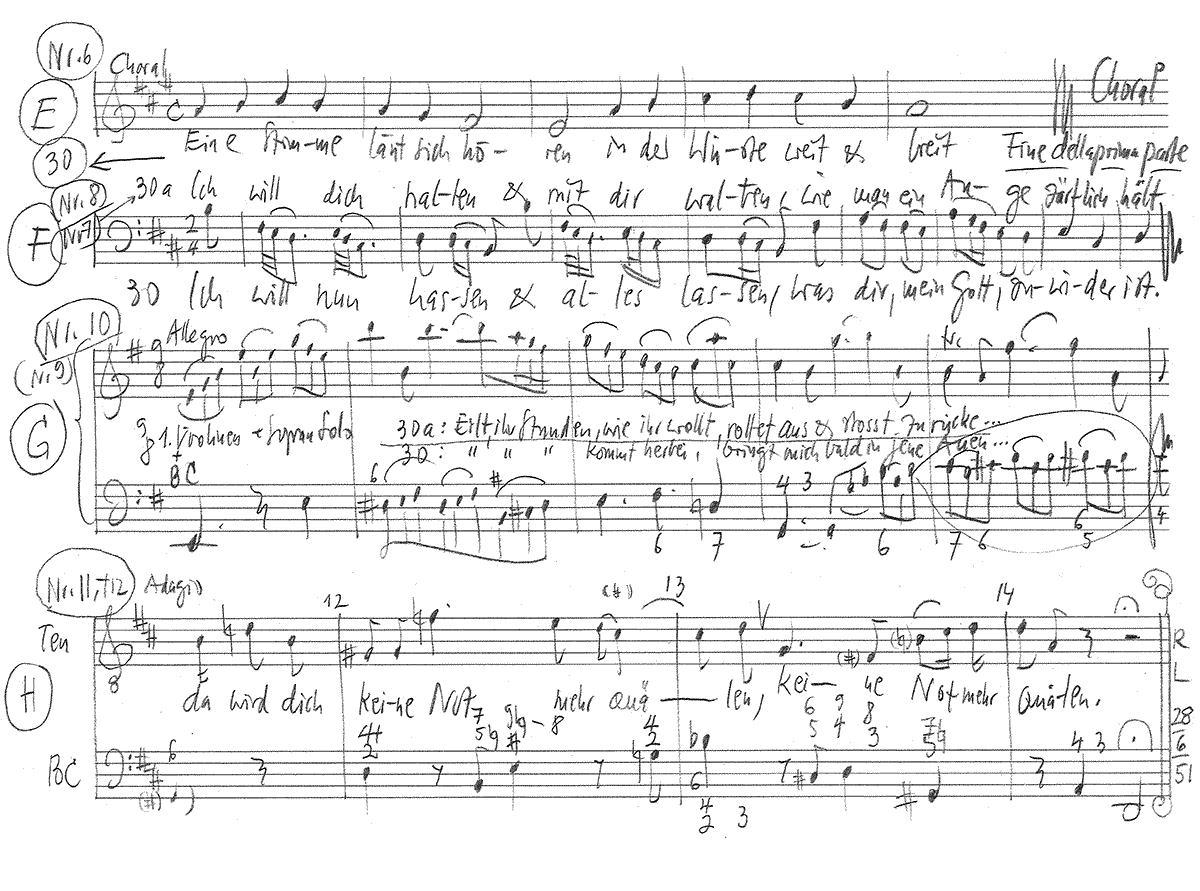 Nr. 6 Choral
E
Choral
Eine Stim-me läßt sich hö- ren in der Wü-ste weit & breit
Fine della prima parte
30
30a Ich will dich hal-ten & mit dir wal-ten, wie man ein Au- ge zärtlich hält.
Nr. 8
(Nr 7)
F
2 4
30 Ich will nun has-sen & al- les las-sen, was dir, mein Gott, zu-wi-der ist.
Nr. 10
Allegro
(Nr. 9)
9 8
tr.
G
1. Violinen + Sopran Solo
30a: Eilt, ihr Stunden, wie ihr wollt, rottet aus & stosst zurücke...
30: " " " kommt herbei, bringt mich bald in jene Auen...
BC
6 # 4 3 6
6 7 6 7 6 5
Nr. 11, +12 Adagio
12 (#) 13 V 14
Ten
8
H
da wird dich kei-ne Not mehr quä — len, kei- ne Not mehr quä-len.
R
L
28
6
51
BC
6 4+ 2 7 5♮ 9 8 4 2 6 5 9 4 8 3 7 5 4 3
(#) 6 4 2 3